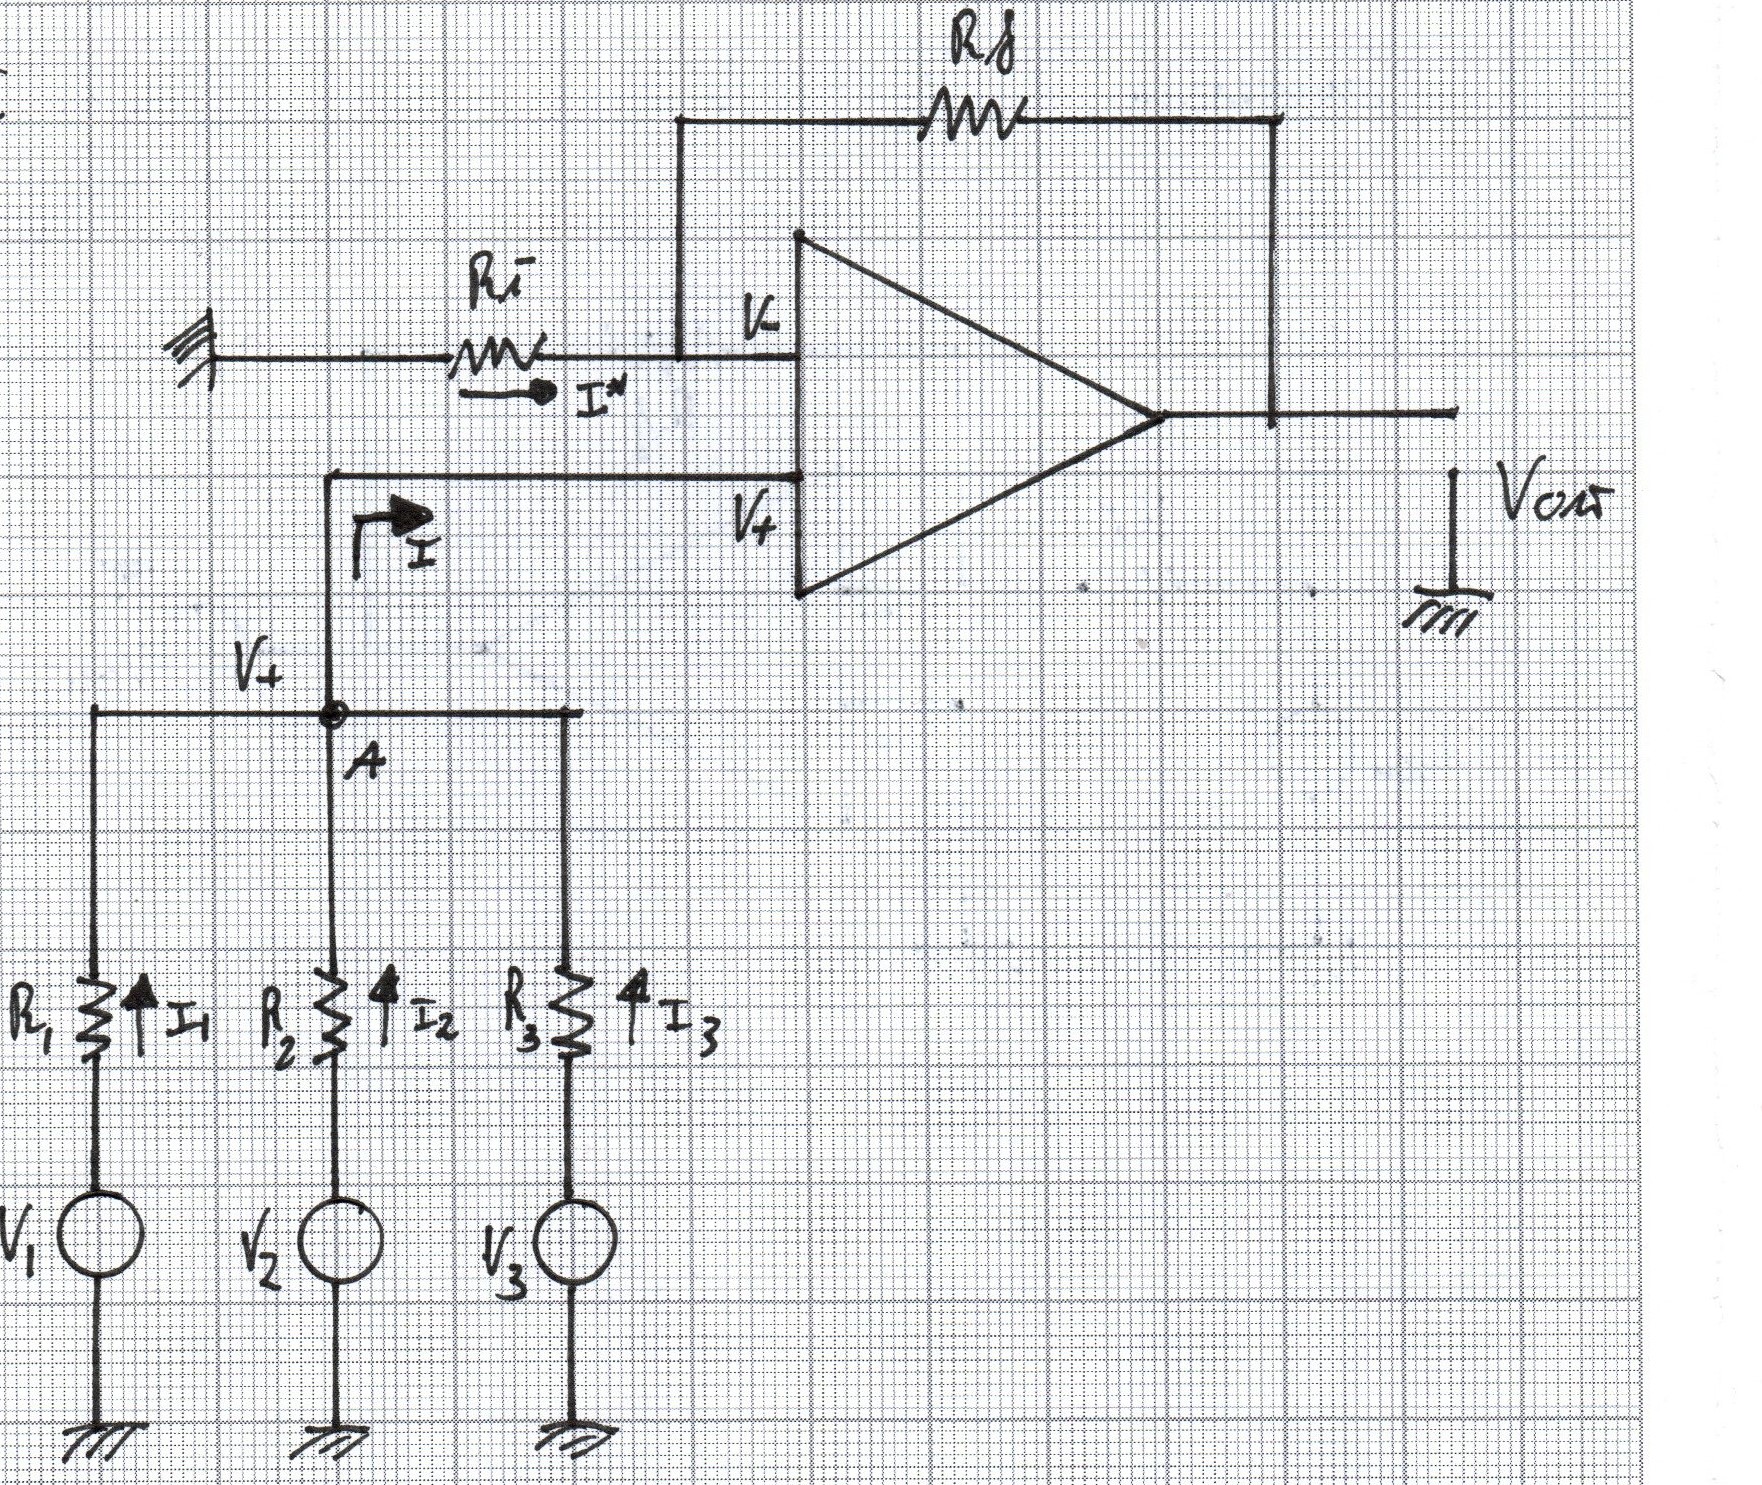 Rf
Ri
V-
I*
V+
I
Vout
V+
A
R1 I1 R2 I2 R3 I3
V1 V2 V3